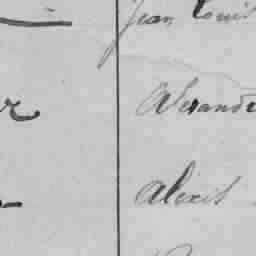 Jean Louis
Alexandre
Alexis